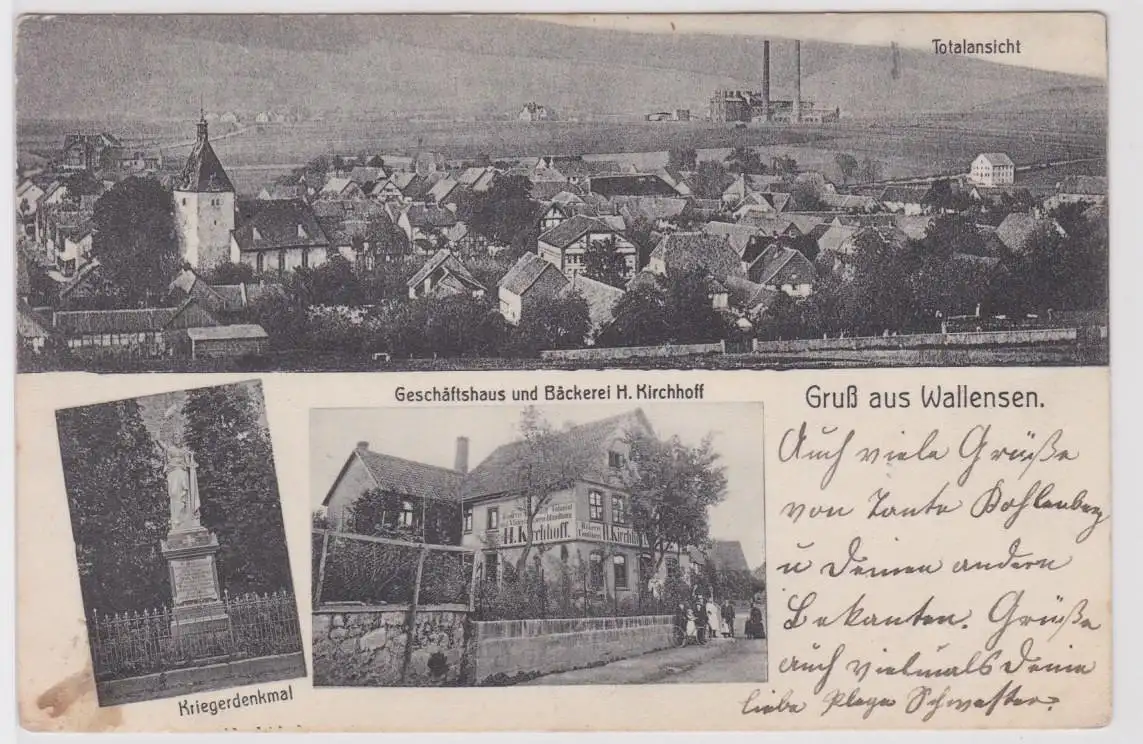 Totalansicht
Geschäftshaus und Bäckerei H. Kirchhoff
Gruß aus Wallensen.
H. Kirchhoff.
Bäckerei
H. Kirchhoff
Kriegerdenkmal
Auch viele Grüße
von Tante Dohlenberg
u Deinen andern
Bekanten. Grüße
auch vielmals Deine
liebe Plege Schwester.